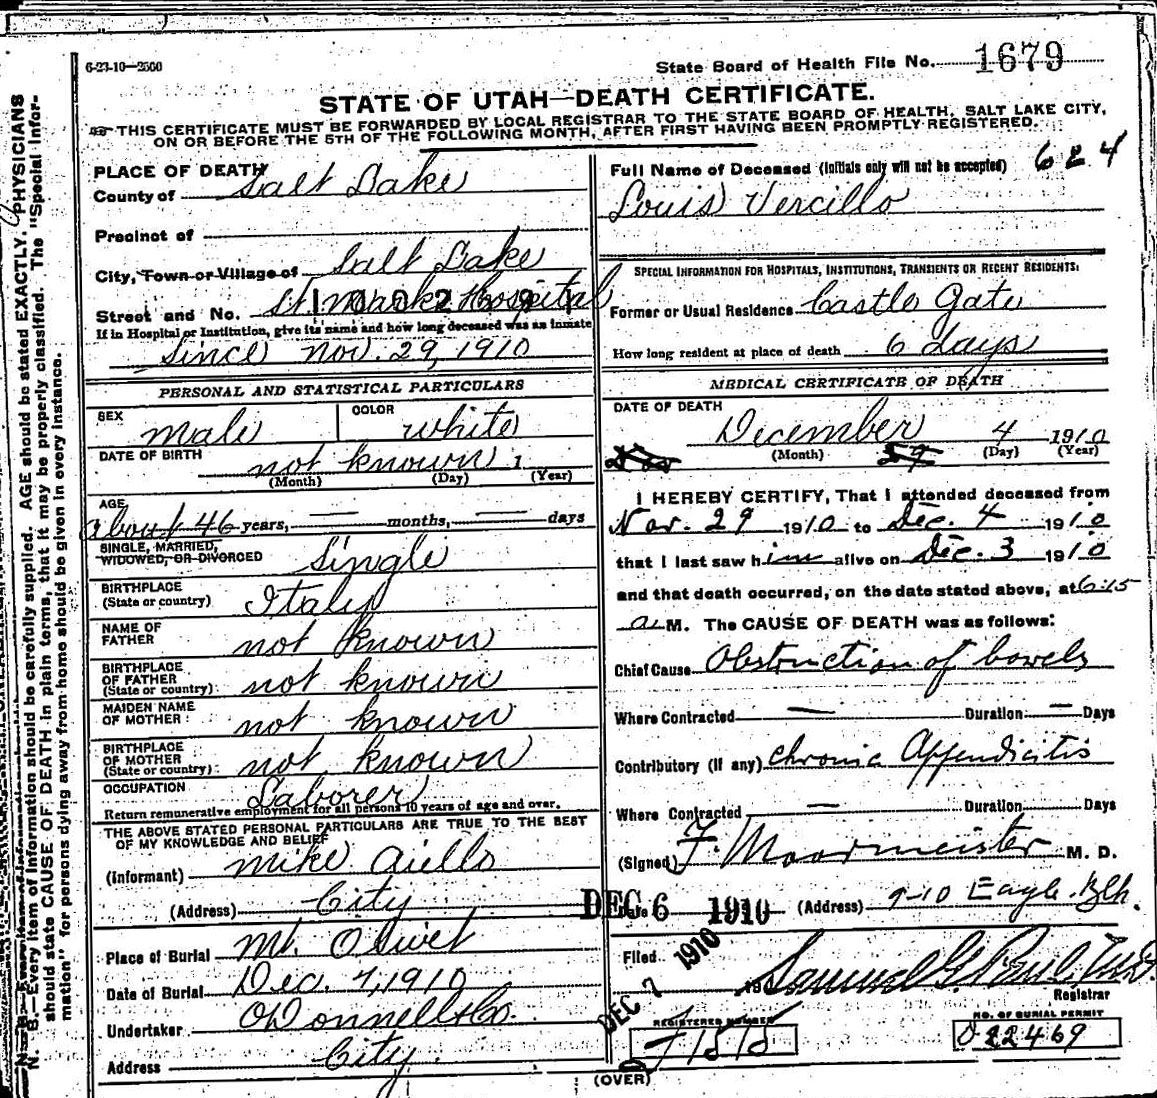 6-23-10—2500
State Board of Health File No. 1679
STATE OF UTAH—DEATH CERTIFICATE.
THIS CERTIFICATE MUST BE FORWARDED BY LOCAL REGISTRAR TO THE STATE BOARD OF HEALTH, SALT LAKE CITY,
ON OR BEFORE THE 5TH OF THE FOLLOWING MONTH, AFTER FIRST HAVING BEEN PROMPTLY REGISTERED.
N. B.—Every item of information should be carefully supplied. AGE should be stated EXACTLY. PHYSICIANS
should state CAUSE OF DEATH in plain terms, that it may be properly classified. The "Special Infor-
mation" for persons dying away from home should be given in every instance.
PLACE OF DEATH
County of Salt Lake
Precinct of
City, Town or Village of Salt Lake
Street and No. St. Marks Hospital
If in Hospital or Institution, give its name and how long deceased was an inmate
Since Nov. 29, 1910
PERSONAL AND STATISTICAL PARTICULARS
SEX male COLOR white
DATE OF BIRTH not known 1
(Month) (Day) (Year)
AGE
about 46 years, — months, — days
SINGLE, MARRIED,
WIDOWED, OR DIVORCED Single
BIRTHPLACE
(State or country) Italy
NAME OF
FATHER not known
BIRTHPLACE
OF FATHER
(State or country) not known
MAIDEN NAME
OF MOTHER not known
BIRTHPLACE
OF MOTHER
(State or country) not known
OCCUPATION Laborer
Return remunerative employment for all persons 10 years of age and over.
THE ABOVE STATED PERSONAL PARTICULARS ARE TRUE TO THE BEST
OF MY KNOWLEDGE AND BELIEF
(Informant) Mike Aiello
(Address) City
Place of Burial Mt. Olivet
Date of Burial Dec. 7, 1910
Undertaker O'Donnell & Co.
Address City
624
Full Name of Deceased (Initials only will not be accepted)
Louis Vercillo
SPECIAL INFORMATION FOR HOSPITALS, INSTITUTIONS, TRANSIENTS OR RECENT RESIDENTS:
Former or Usual Residence Castle Gate
How long resident at place of death 6 days
MEDICAL CERTIFICATE OF DEATH
DATE OF DEATH
December 4 1910
(Month) (Day) (Year)
I HEREBY CERTIFY, That I attended deceased from
Nov. 29 1910 to Dec. 4 1910
that I last saw him alive on Dec. 3 1910
and that death occurred, on the date stated above, at 6:15
a. M. The CAUSE OF DEATH was as follows:
Chief Cause Obstruction of bowels
Where Contracted — Duration — Days
Contributory (if any) Chronic Appendicitis
Where Contracted — Duration Days
(Signed) F. Moormeister M. D.
DEC 6 1910 (Address) 9-10 Eagle Blk.
Filed DEC 7 1910 Samuel G. Paul, M.D.
Registrar
REGISTERED NUMBER
NO. OF BURIAL PERMIT
22469
(OVER)